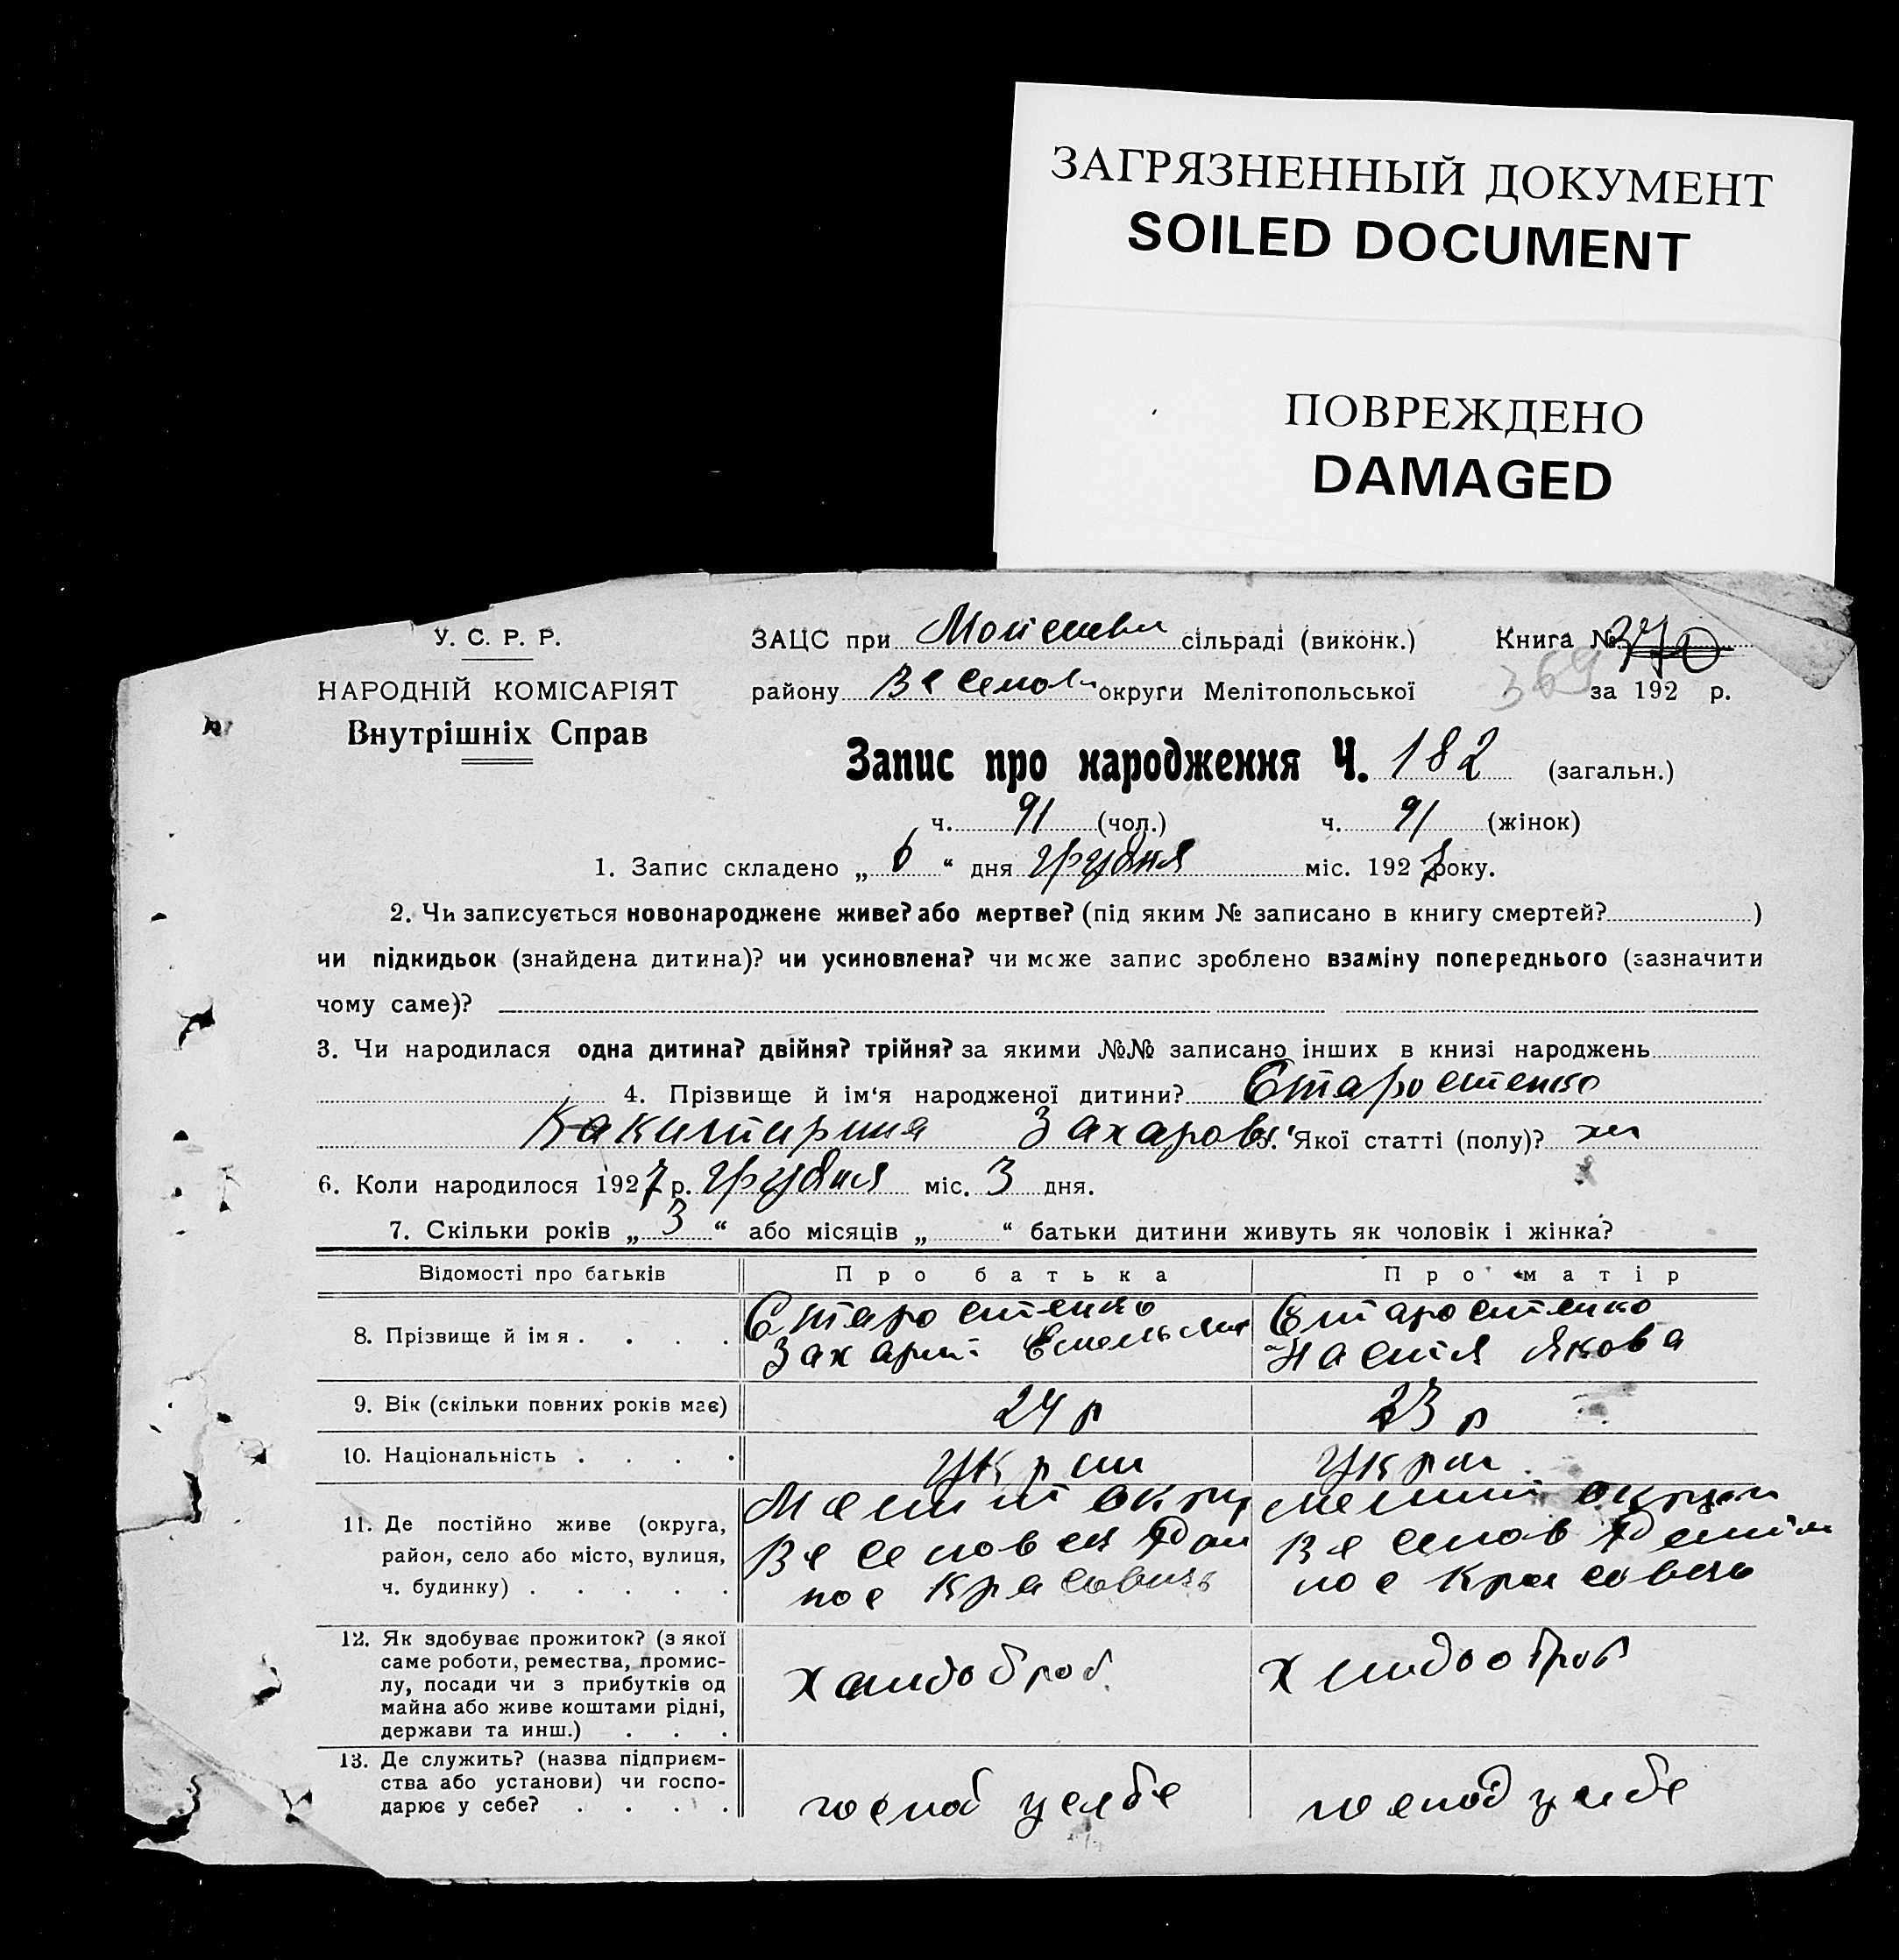 ЗАГРЯЗНЕННЫЙ ДОКУМЕНТ
SOILED DOCUMENT
ПОВРЕЖДЕНО
DAMAGED
У. С. Р. Р.
НАРОДНІЙ КОМІСАРІЯТ
Внутрішніх Справ
ЗАЦС при сільраді (виконк.) Книга № 370
району Веселов округи Мелітопольської 369 за 192 р.
Запис про народження Ч. 182 (загальн.)
ч. 91 (чол.) ч. 91 (жінок)
1. Запис складено „ 6 “ дня грудня міс. 1927 року.
2. Чи записується новонароджене живе? або мертве? (під яким № записано в книгу смертей? )
чи підкидьок (знайдена дитина)? чи усиновлена? чи може запис зроблено взаміну попереднього (зазначити
чому саме)?
3. Чи народилася одна дитина? двійня? трійня? за якими №№ записано інших в книзі народжень
4. Прізвище й ім‘я народженої дитини? Старостенко
Захаров 5. Якої статті (полу)? жи
6. Коли народилося 1927 р. грудня міс. 3 дня.
7. Скільки років „ 3 “ або місяців „ “ батьки дитини живуть як чоловік і жінка?
Відомості про батьків Про батька Про матір
8. Прізвище й імя . . . .
Старостенко Захарий Емельян
Старостенко Настя Якова
9. Вік (скільки повних років має) 24 р 23 р
10. Національність . . . . Укра Укра
11. Де постійно живе (округа,
район, село або місто, вулиця,
ч. будинку) . . . . .
12. Як здобуває прожиток? (з якої
саме роботи, ремества, промис-
лу, посади чи з прибутків од
майна або живе коштами рідні,
держави та инш.) . . .
хлидоброб
хлидообров
13. Де служить? (назва підприєм-
ства або установи) чи госпо-
дарює у себе? . . . .
господ у себе
господ у себе